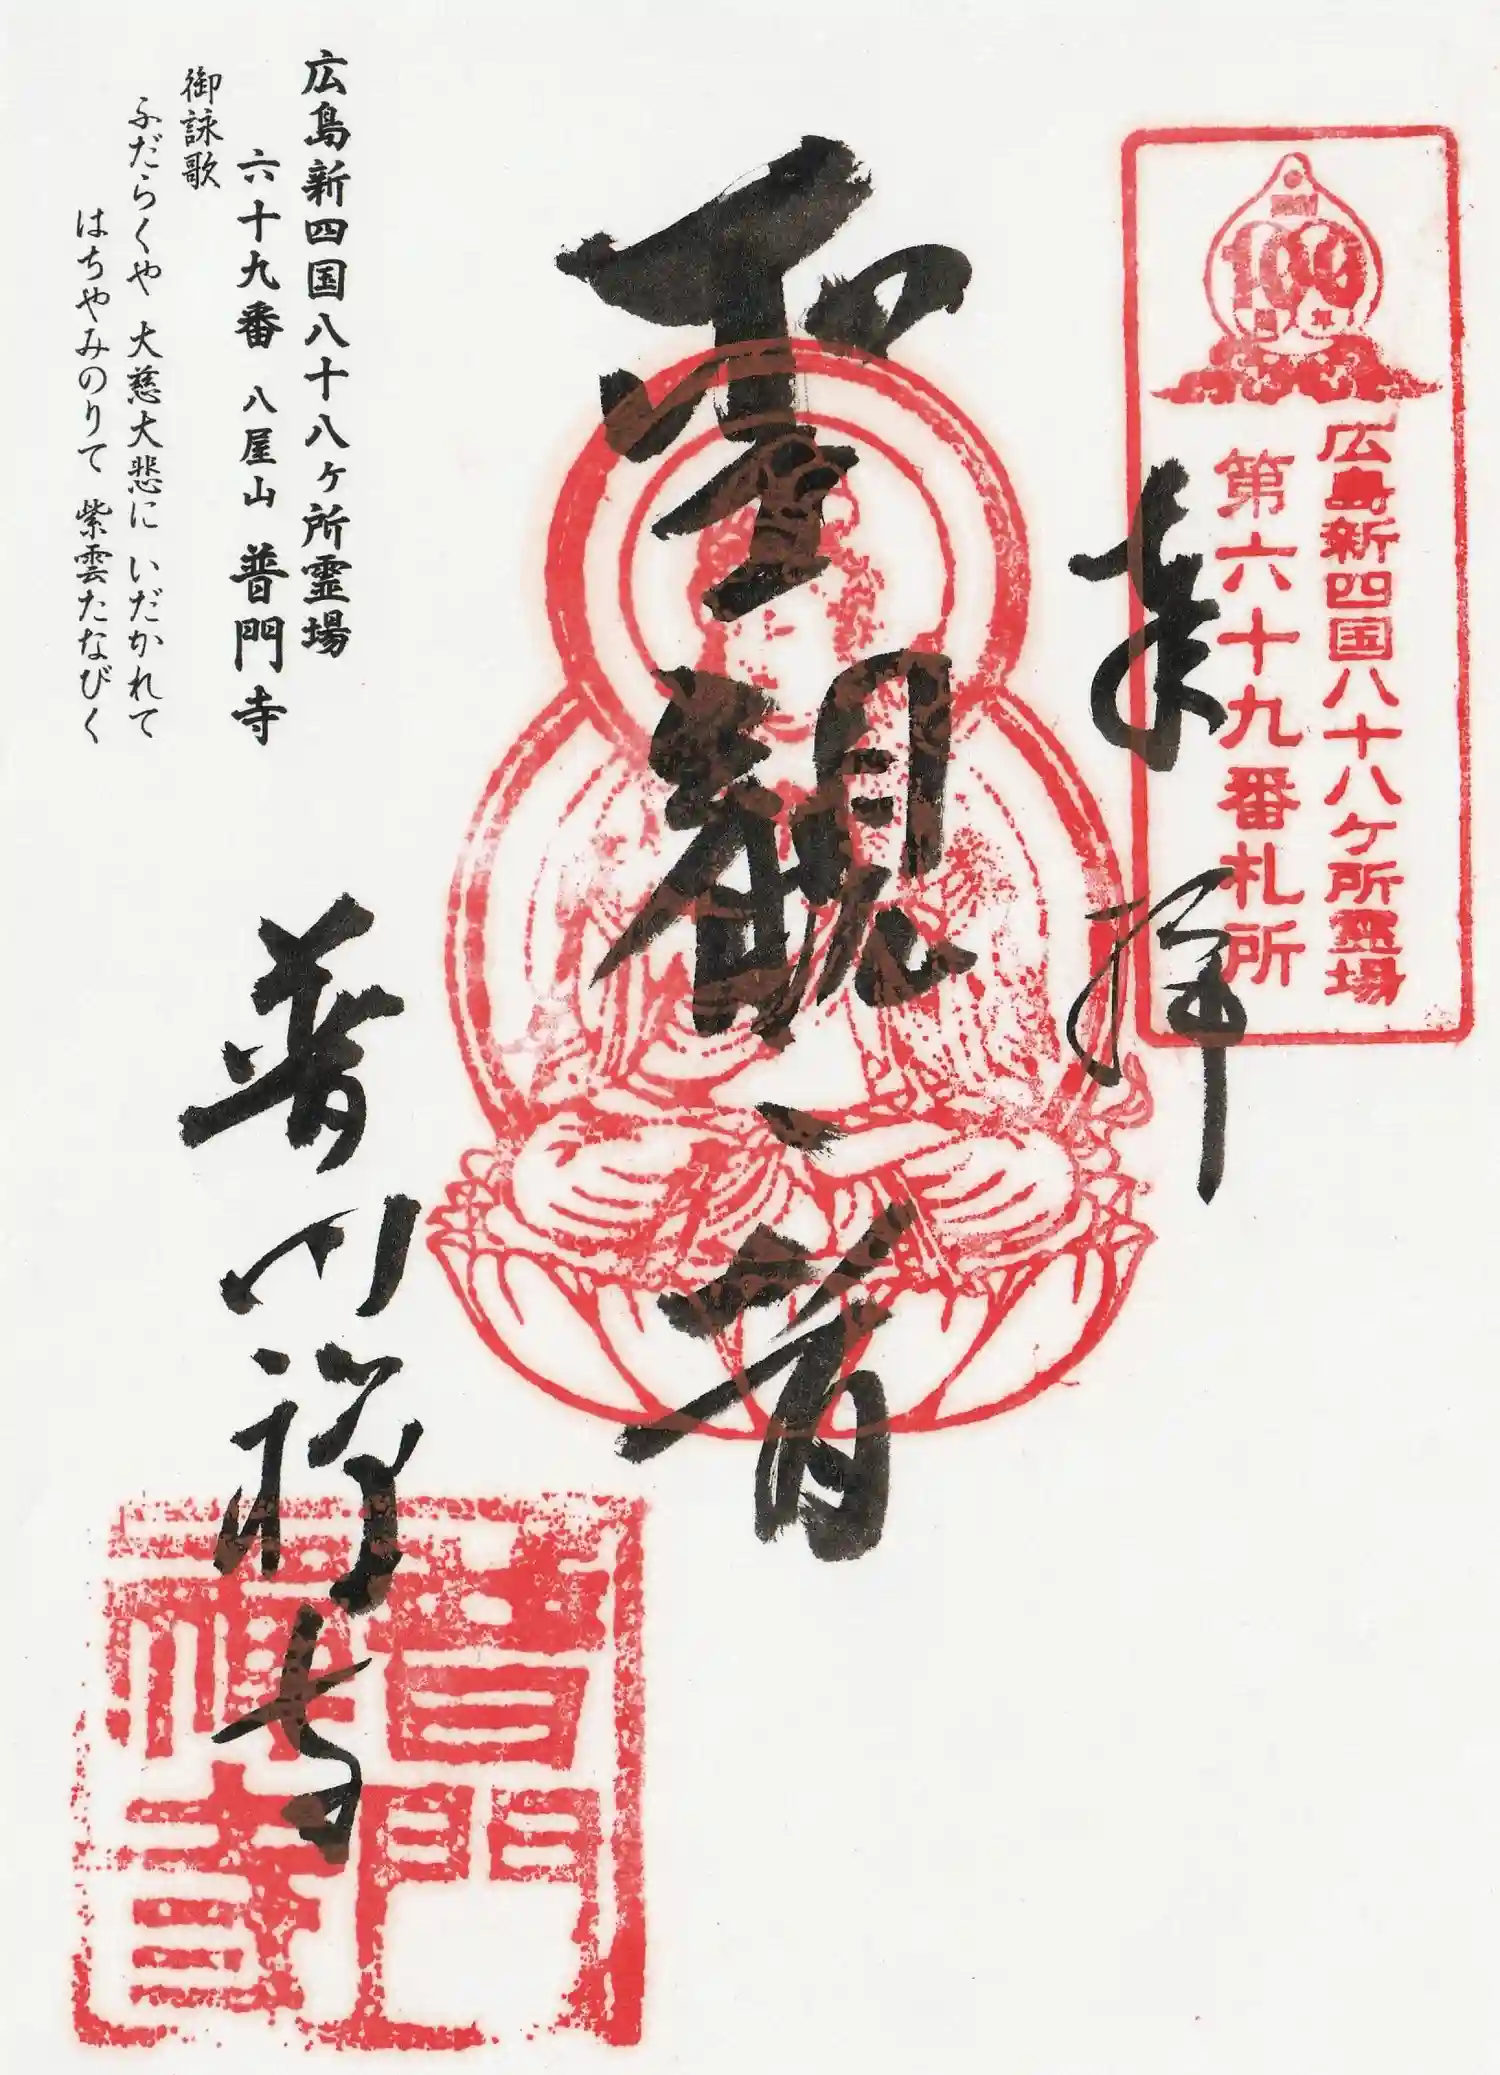 広島新四国八十八ヶ所霊場
第六十九番札所
奉拝
聖観音
普門禅寺
普門
禅寺
広島新四国八十八ヶ所霊場
六十九番 八屋山 普門寺
御詠歌
ふだらくや 大慈大悲に いだかれて
はちやみのりて 紫雲たなびく